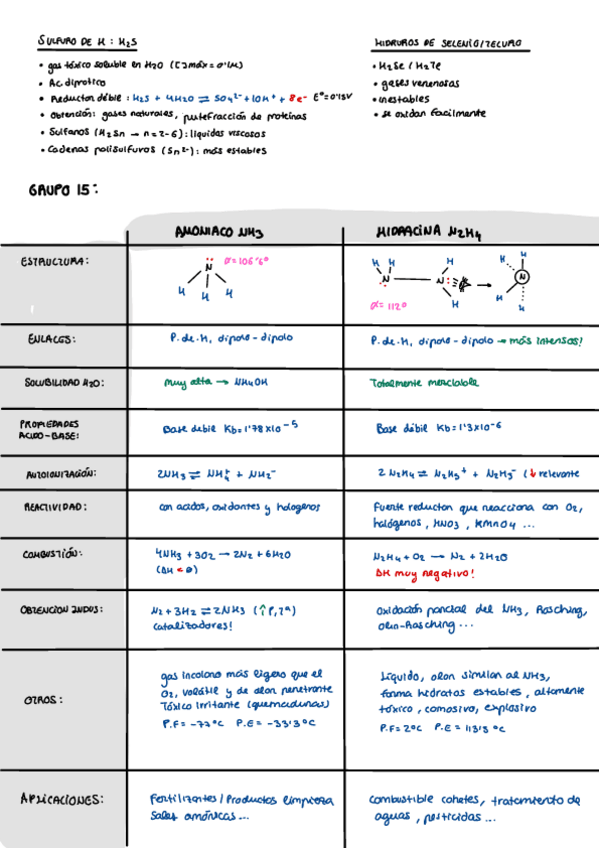 SULFURO DE H : H2S
• gas tóxico soluble en H2O ([ ]máx = 0'1M)
• Ac. diprótico
• Reductor débil : H2S + 4H2O ⇌ SO4²⁻ + 10H⁺ + 8e⁻ E⁰=0'15V
• Obtención: gases naturales, putrefracción de proteínas
• Sulfanos (H2Sn → n=2-6) : líquidos viscosos
• Cadenas polisulfuros (Sn²⁻) : más estables
HIDRUROS DE SELENIO/TELURO
• H2Se / H2Te
• gases venenosos
• inestables
• se oxidan facilmente
GRUPO 15 :
AMONIACO NH3
HIDRACINA N2H4
ESTRUCTURA :
α = 106'6º
N
H H H
H H H
N N
H
α = 112º
H H
N
H H
ENLACES :
P. de H, dipolo - dipolo
P. de H, dipolo - dipolo → más intensos!
SOLUBILIDAD H2O :
muy alta → NH4OH
Totalmente mezclable
PROPIEDADES
ACIDO-BASE:
Base debil Kb = 1'78x10⁻⁵
Base débil Kb = 1'3x10⁻⁶
AUTOIONIZACIÓN:
2NH3 ⇌ NH4⁺ + NH2⁻
2 N2H4 ⇌ N2H5⁺ + N2H3⁻ (↓ relevante
REACTIVIDAD :
con acidos, oxidantes y halogenos
Fuente reductor que reacciona con O2,
halógenos , HNO3 , KMnO4 ...
COMBUSTIÓN :
4NH3 + 3O2 → 2N2 + 6H2O
(ΔH < 0)
N2H4 + O2 → N2 + 2H2O
ΔH muy negativo!
OBTENCION INDUS:
N2 + 3H2 ⇌ 2NH3 (↑P, Tª)
Catalizadores!
Oxidación parcial del NH3, Rasching,
Olin-Rasching ...
OTROS :
gas incoloro más ligero que el
O2, volátil y de olor penetrante
Tóxico irritante (quemaduras)
P.F = -77ºC P.E = -33'3ºC
Líquido, olor similar al NH3,
forma hidratos estables , altamente
tóxico , corrosivo, explosivo
P.F = 2ºC P.E = 113'5 ºC
APLICACIONES :
Fertilizantes / Productos limpieza
Sales amónicas ...
combustible cohetes, tratamiento de
aguas , pesticidas ...